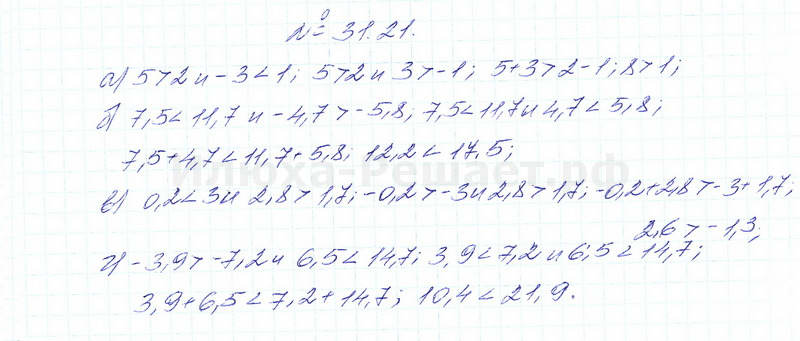 № 31.21.
а) 5>2 и -3<1; 5>2 и 3>-1; 5+3>2-1; 8>1;
б) 7,5<11,7 и -4,7>-5,8; 7,5<11,7 и 4,7<5,8;
7,5+4,7<11,7+5,8; 12,2<17,5;
Илюха-Решает.рф
в) 0,2<3 и 2,8>1,7; -0,2>-3 и 2,8>1,7; -0,2+2,8>-3+1,7;
2,6>-1,3;
г) -3,9>-7,2 и 6,5<14,7; 3,9<7,2 и 6,5<14,7;
3,9+6,5<7,2+14,7; 10,4<21,9.